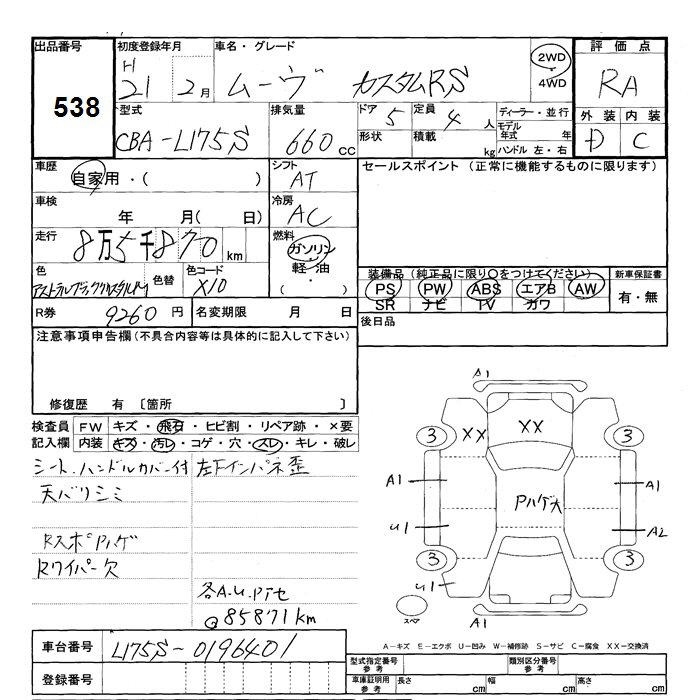 出品番号 初度登録年月 車名・グレード 2WD 4WD 評価点
538 H 21 2月 ムーヴ カスタムRS RA
型式 排気量 ドア 5 定員 4人 ディーラー・並行 外装 内装
CBA-L175S 660cc 形状 積載 kg モデル年式 年 D C
ハンドル 左・右
車歴 自家用・( ) シフト AT セールスポイント (正常に機能するものに限ります)
車検 年 月( 日) 冷房 AC
走行 8万5千870 km 燃料 ガソリン
軽油
( ・ )
色 色替 色コード X10 装備品(純正品に限り〇をつけてください) 新車保証書
PS PW ABS エアB AW 有・無
SR ナビ TV カワ
R券 9260 円 名変期限 月 日 後日品
注意事項申告欄(不具合内容等は具体的に記入して下さい)
修復歴 有 〔箇所 〕
検査員 FW キズ・飛石・ヒビ割・リペア跡・×要
記入欄 内装 キズ・汚レ・コゲ・穴・スレ・キレ・破レ
シート、ハンドルカバー付 左下インパネ歪
天バリシミ
RスポPハゲ
Rワイパー欠
各A.U.Pアセ
@85871km
A1
XX XX
3 3
A1 A1
Pハゲ大
U1 A2
3 3
U1
スペア A1
A-キズ E-エクボ U-凹み W-補修跡 S-サビ C-腐食 XX-交換済
車台番号 L175S-0196401
登録番号
型式指定番号 参考 類別区分番号 参考
車庫証明用 参考 長さ cm 幅 cm 高さ cm